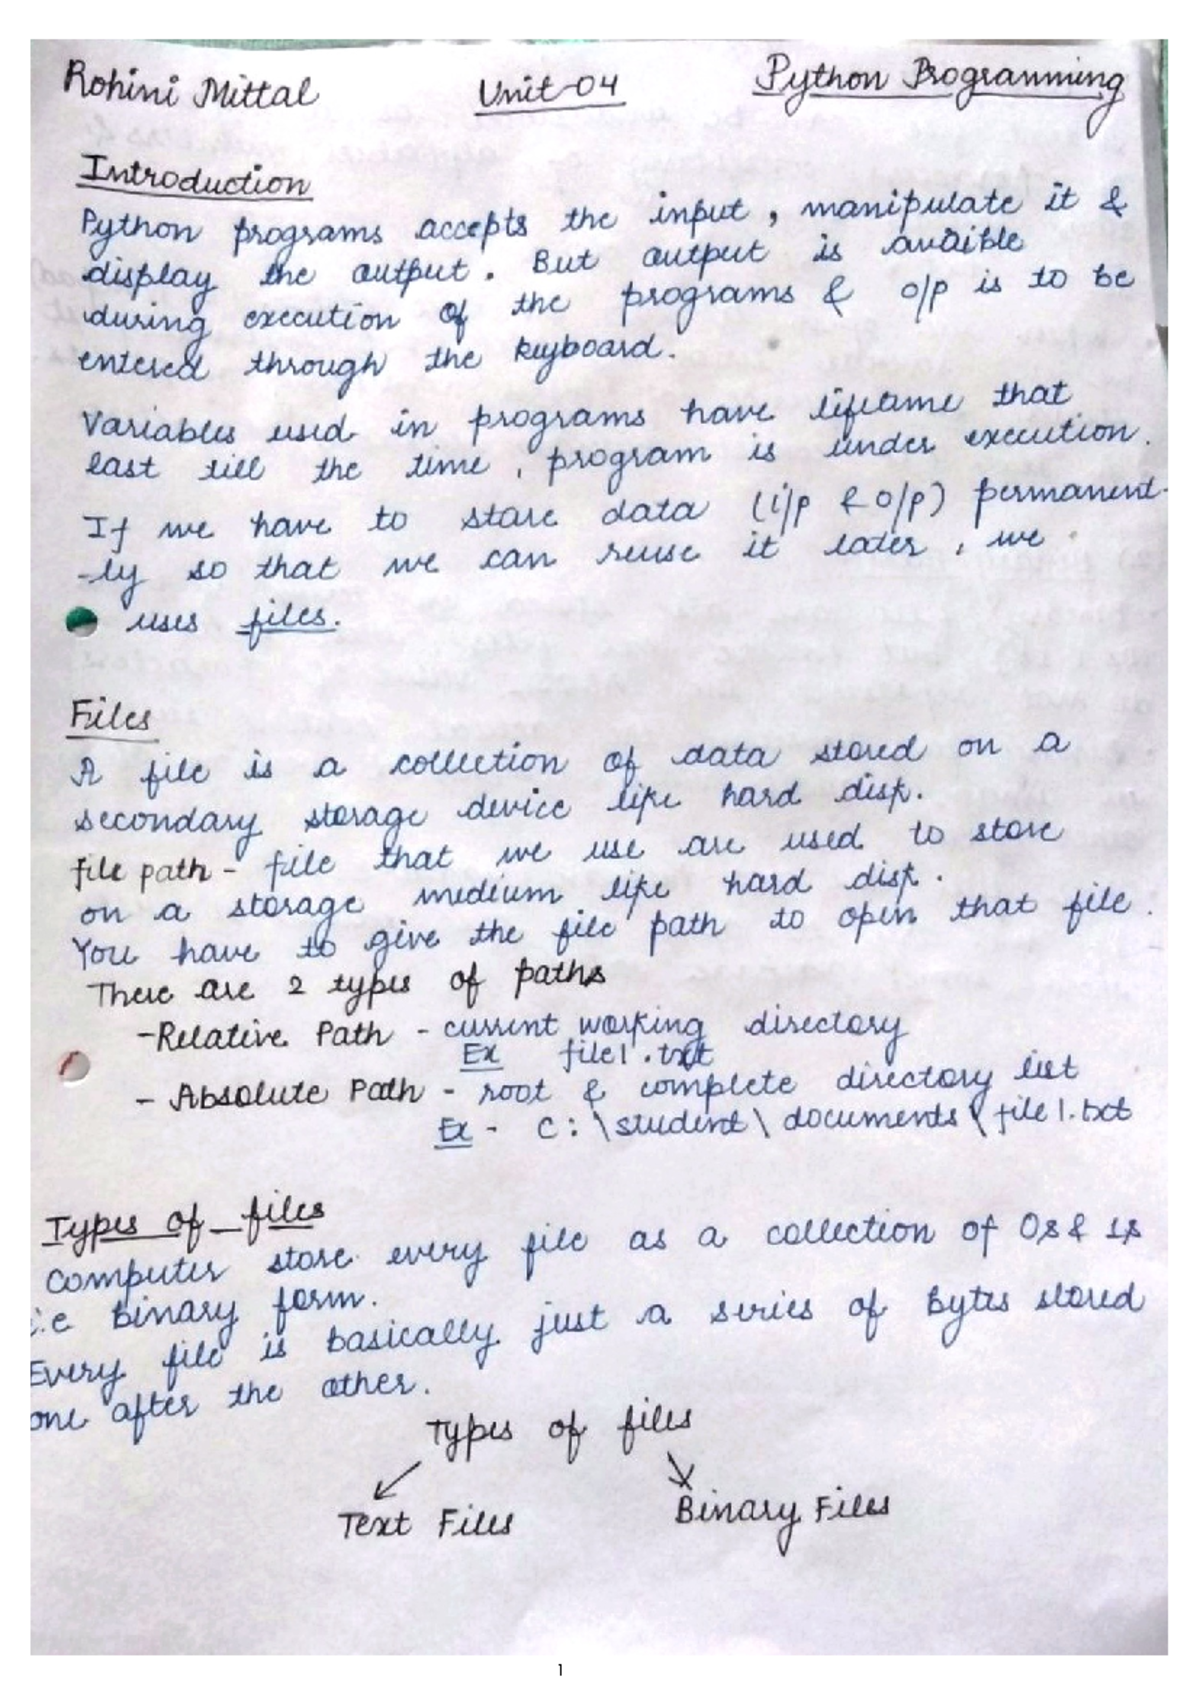 Rohini Mittal Unit-04 Python Programming
Introduction
Python programs accepts the input, manipulate it &
display the output. But output is avaible
during execution of the programs & o/p is to be
entered through the keyboard.
Variables used in programs have lifetime that
last till the time, program is under execution.
If we have to store data (i/p & o/p) permanent-
-ly so that we can reuse it later, we
uses files.
Files
A file is a collection of data stored on a
secondary storage device like hard disk.
file path - file that we use are used to store
on a storage medium like hard disk.
You have to give the file path to open that file.
There are 2 types of paths
-Relative Path - current working directory
Ex file1.txt
- Absolute Path - root & complete directory list
Ex - C:\student\documents\file1.txt
Types of files
Computer store every file as a collection of 0s & 1s
i.e Binary form.
Every file is basically just a series of Bytes stored
one after the other.
Types of files
Text Files Binary Files
1